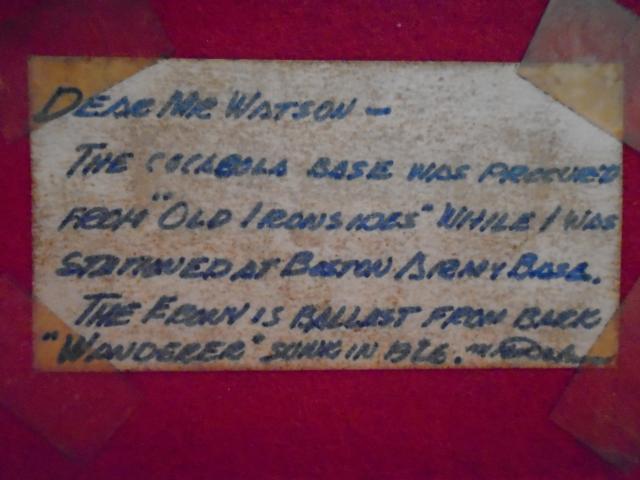 DEAR MR WATSON —
THE COCABOLA BASE WAS PROCUR'D
FROM "OLD IRONSIDES" WHILE I WAS
STATIONED AT BOSTON ARMY BASE.
THE EBONY IS BALLAST FROM BARK
"WANDERER" SUNK IN 1926.